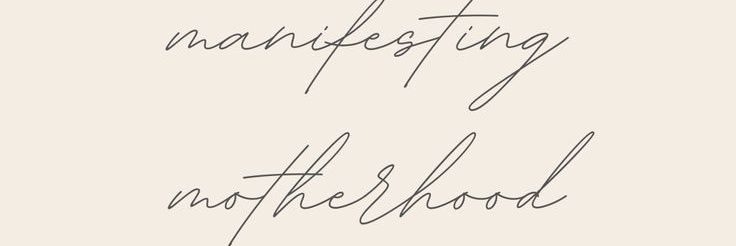 manifesting
motherhood